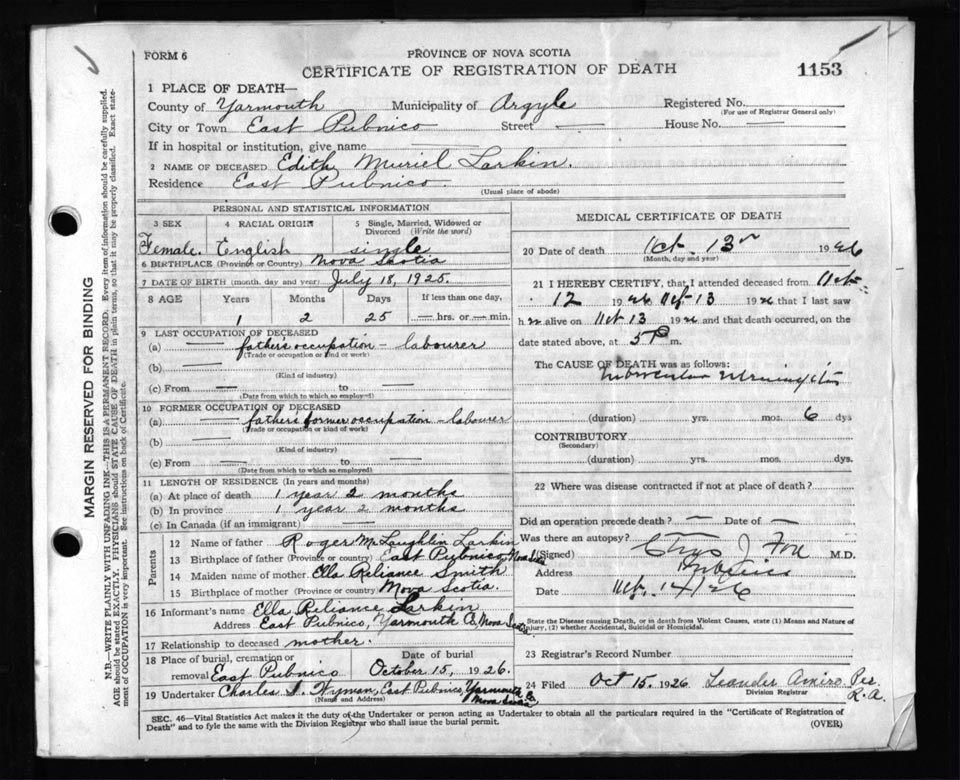 FORM 6
PROVINCE OF NOVA SCOTIA
CERTIFICATE OF REGISTRATION OF DEATH
1153
1 PLACE OF DEATH—
County of Yarmouth Municipality of Argyle Registered No.
(For use of Registrar General only)
City or Town East Pubnico Street — House No. —
If in hospital or institution, give name —
2 NAME OF DECEASED Edith Muriel Larkin.
Residence East Pubnico.
(Usual place of abode)
PERSONAL AND STATISTICAL INFORMATION
3 SEX 4 RACIAL ORIGIN 5 Single, Married, Widowed or Divorced (Write the word)
Female. English single
6 BIRTHPLACE (Province or Country) Nova Scotia
7 DATE OF BIRTH (month, day and year) July 18, 1925.
8 AGE Years Months Days If less than one day,
1 2 25 — hrs. or — min.
9 LAST OCCUPATION OF DECEASED
(a) — fathers occupation - labourer
(Trade or occupation or kind of work)
(b) —
(Kind of industry)
(c) From — to —
(Date from which to which so employed)
10 FORMER OCCUPATION OF DECEASED
(a) — fathers former occupation - labourer
(Trade or occupation or kind of work)
(b) —
(Kind of industry)
(c) From — to —
(Date from which to which so employed)
11 LENGTH OF RESIDENCE (In years and months)
(a) At place of death 1 year 2 months
(b) In province 1 year 2 months
(c) In Canada (if an immigrant) —
Parents
12 Name of father Roger McLaughlin Larkin
13 Birthplace of father (Province or country) East Pubnico, Nova Scotia
14 Maiden name of mother Ella Reliance Smith
15 Birthplace of mother (Province or country) Nova Scotia.
16 Informant's name Ella Reliance Larkin
Address East Pubnico, Yarmouth Co, Nova Scotia
17 Relationship to deceased mother.
18 Place of burial, cremation or removal East Pubnico Date of burial October 15, 1926.
19 Undertaker Charles S. Nyman, East Pubnico, Yarmouth Co Nova Scotia
(Name and Address)
MEDICAL CERTIFICATE OF DEATH
20 Date of death Oct. 13 1926
(Month, day and year)
21 I HEREBY CERTIFY, that I attended deceased from Oct.
12 1926 Oct 13 1926 that I last saw
h alive on Oct 13 1926 and that death occurred, on
date stated above, at 5 P m.
The CAUSE OF DEATH was as follows:
Tubercular Meningitis
(duration) yrs. mos. 6 dys
CONTRIBUTORY
(Secondary)
(duration) yrs. mos. dys
22 Where was disease contracted if not at place of death?
Did an operation precede death? — Date of —
Was there an autopsy?
(Signed) Chas J. Fox M.D.
Address Pubnico
Date Oct. 14/26
State the Disease causing Death, or in death from Violent Causes, state (1) Means and Nature of
Injury, (2) whether Accidental, Suicidal or Homicidal.
23 Registrar's Record Number
24 Filed Oct 15. 1926 Leander Amiro. Per R.A.
Division Registrar
SEC. 46—Vital Statistics Act makes it the duty of the Undertaker or person acting as Undertaker to obtain all the particulars required in the "Certificate of Registration of
Death" and to fyle the same with the Division Registrar who shall issue the burial permit.
(OVER)
MARGIN RESERVED FOR BINDING
N.B.—WRITE PLAINLY WITH UNFADING INK—THIS IS A PERMANENT RECORD. Every item of information should be carefully supplied.
AGE should be stated EXACTLY. PHYSICIANS should STATE CAUSE OF DEATH in plain terms, so that it may be properly classified. Exact statement
of OCCUPATION is very important. See instructions on back of Certificate.